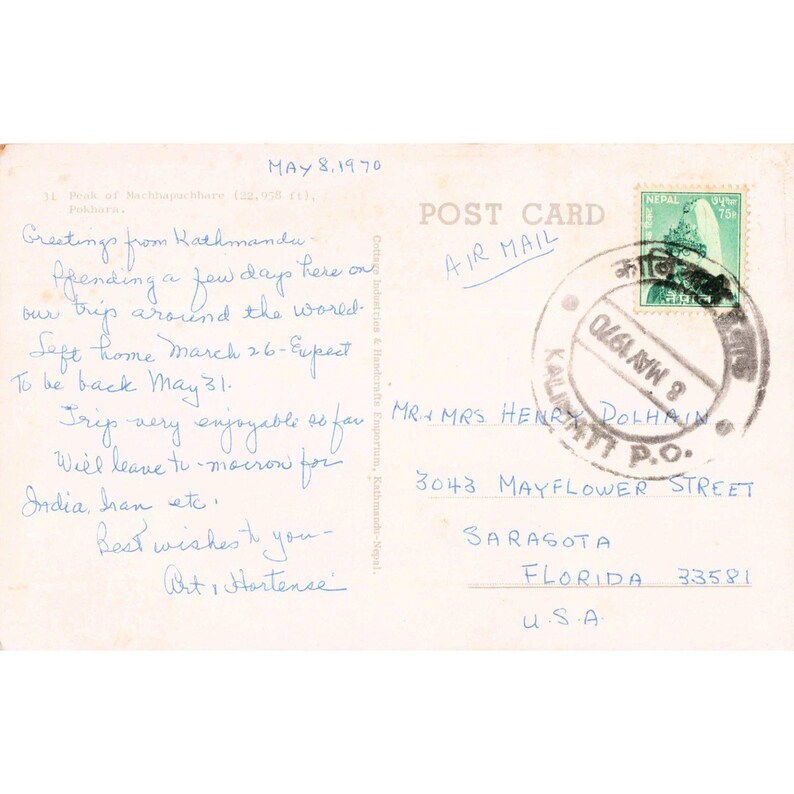 MAY 8, 1970
31 Peak of Machhapuchhare (22,958 ft),
Pokhara.
Greetings from Kathmandu -
Spending a few days here on
our trip around the world -
Left home March 26 - Expect
to be back May 31.
Trip very enjoyable so far
Will leave to-morrow for
India, Iran etc.
Best wishes to you -
Art & Hortense
Cottage Industries & Handcrafts Emporium, Kathmandu-Nepal.
POST CARD
AIR MAIL
NEPAL
75P
नेपाल
8 MAY 1970
KALIMATI P.O.
MR & MRS HENRY POLHAIN
3043 MAYFLOWER STREET
SARASOTA
FLORIDA 33581
U.S.A.